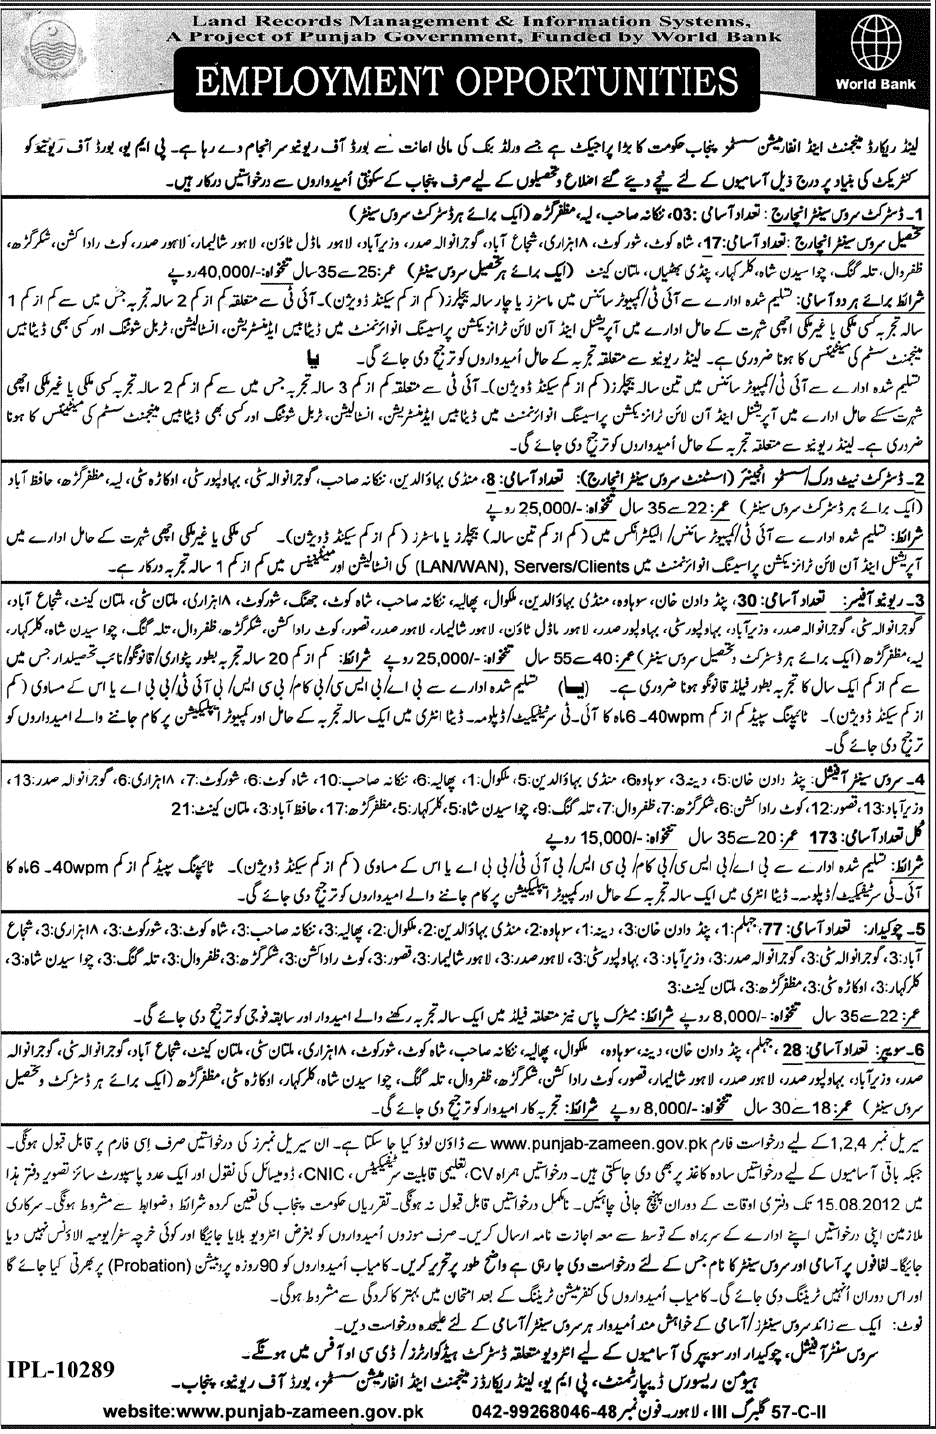 Land Records Management & Information Systems,
A Project of Punjab Government, Funded by World Bank
EMPLOYMENT OPPORTUNITIES
World Bank
لینڈ ریکارڈ مینجمنٹ اینڈ انفارمیشن سسٹمز پنجاب حکومت کا بڑا پراجیکٹ ہے جسے ورلڈ بنک کی مالی اعانت سے بورڈ آف ریونیو سرانجام دے رہا ہے۔ پی ایم یو، بورڈ آف ریونیو کو
کنٹریکٹ کی بنیاد پر درج ذیل آسامیوں کے لئے نیچے دیئے گئے اضلاع و تحصیلوں کے لیے صرف پنجاب کے سکونتی اُمیدواروں سے درخواستیں درکار ہیں۔
1۔ ڈسٹرکٹ سروس سینٹر انچارج : تعداد آسامی :03، ننکانہ صاحب، لیہ، مظفرگڑھ (ایک برائے ہر ڈسٹرکٹ سروس سینٹر)
تحصیل سروس سینٹر انچارج : تعداد آسامی: 17، شاہ کوٹ، شورکوٹ، ۱۸ہزاری، شجاع آباد، گوجرانوالہ صدر، وزیرآباد، لاہور ماڈل ٹاؤن، لاہور شالیمار، لاہور صدر، کوٹ رادا کشن، شکرگڑھ،
ظفروال، تلہ گنگ، چوا سیدن شاہ، کلرکہار، پنڈی بھٹیاں، ملتان کینٹ (ایک برائے ہر تحصیل سروس سینٹر) عمر: 25 سے 35 سال تنخواہ: -/40,000 روپے
شرائط برائے ہر دو آسامی: تسلیم شدہ ادارے سے آئی ٹی/کمپیوٹر سائنس میں ماسٹرز یا چار سالہ بیچلرز (کم از کم سیکنڈ ڈویژن)۔ آئی ٹی سے متعلقہ کم از کم 2 سالہ تجربہ جس میں سے کم از کم 1
سالہ تجربہ کسی ملکی یا غیر ملکی اچھی شہرت کے حامل ادارے میں آپریشنل اینڈ آن لائن ٹرانزیکشن پراسیسنگ انوائرنمنٹ میں ڈیٹا بیس ایڈمنسٹریشن، انسٹالیشن، ٹربل شوٹنگ اور کسی بھی ڈیٹا بیس
مینجمنٹ سسٹم کی مینٹیننس کا ہونا ضروری ہے۔ لینڈ ریونیو سے متعلقہ تجربہ کے حامل اُمیدواروں کو ترجیح دی جائے گی۔ یا
تسلیم شدہ ادارے سے آئی ٹی/کمپیوٹر سائنس میں تین سالہ بیچلرز (کم از کم سیکنڈ ڈویژن)۔ آئی ٹی سے متعلقہ کم از کم 3 سالہ تجربہ جس میں سے کم از کم 2 سالہ تجربہ کسی ملکی یا غیر ملکی اچھی
شہرت کے حامل ادارے میں آپریشنل اینڈ آن لائن ٹرانزیکشن پراسیسنگ انوائرنمنٹ میں ڈیٹا بیس ایڈمنسٹریشن، انسٹالیشن، ٹربل شوٹنگ اور کسی بھی ڈیٹا بیس مینجمنٹ سسٹم کی مینٹیننس کا ہونا
ضروری ہے۔ لینڈ ریونیو سے متعلقہ تجربہ کے حامل اُمیدواروں کو ترجیح دی جائے گی۔
2۔ ڈسٹرکٹ نیٹ ورک/سسٹمز انجینئر (اسسٹنٹ سروس سینٹر انچارج): تعداد آسامی: 8، منڈی بہاؤالدین، ننکانہ صاحب، گوجرانوالہ سٹی، بہاولپور سٹی، اوکاڑہ سٹی، لیہ، مظفرگڑھ، حافظ آباد
(ایک برائے ہر ڈسٹرکٹ سروس سینٹر) عمر: 22 سے 35 سال تنخواہ: -/25,000 روپے
شرائط: تسلیم شدہ ادارے سے آئی ٹی/کمپیوٹر سائنس/الیکٹرانکس میں (کم از کم تین سالہ) بیچلرز یا ماسٹرز (کم از کم سیکنڈ ڈویژن)۔ کسی ملکی یا غیر ملکی اچھی شہرت کے حامل ادارے میں
آپریشنل اینڈ آن لائن ٹرانزیکشن پراسیسنگ انوائرنمنٹ میں LAN/WAN), Servers/Clients) کی انسٹالیشن اور مینٹیننس میں کم از کم 1 سالہ تجربہ درکار ہے۔
3۔ ریونیو آفیسر: تعداد آسامی: 30، پنڈ دادن خان، سوہاوہ، منڈی بہاؤالدین، ملکوال، پھالیہ، ننکانہ صاحب، شاہ کوٹ، جھنگ، شورکوٹ، ۱۸ہزاری، ملتان سٹی، ملتان کینٹ، شجاع آباد،
گوجرانوالہ سٹی، گوجرانوالہ صدر، وزیرآباد، بہاولپور سٹی، بہاولپور صدر، لاہور ماڈل ٹاؤن، لاہور شالیمار، لاہور صدر، قصور، کوٹ رادا کشن، شکرگڑھ، ظفروال، تلہ گنگ، چوا سیدن شاہ، کلرکہار،
لیہ، مظفرگڑھ (ایک برائے ہر ڈسٹرکٹ و تحصیل سروس سینٹر) عمر: 40 سے 55 سال تنخواہ: -/25,000 روپے شرائط: کم از کم 20 سالہ تجربہ بطور پٹواری/قانونگو/نائب تحصیلدار جس میں
سے کم از کم ایک سال کا تجربہ بطور فیلڈ قانونگو ہونا ضروری ہے۔ (یا) تسلیم شدہ ادارے سے بی اے/بی ایس سی/بی کام/بی سی ایس/بی آئی ٹی/بی بی اے یا اس کے مساوی (کم
از کم سیکنڈ ڈویژن)۔ ٹائپنگ سپیڈ کم از کم 40wpm۔ 6ماہ کا آئی۔ٹی سرٹیفکیٹ/ڈپلومہ۔ ڈیٹا انٹری میں ایک سالہ تجربہ کے حامل اور کمپیوٹر اپلیکیشن پر کام جاننے والے امیدواروں کو
ترجیح دی جائے گی۔
4۔ سروس سینٹر آفیشل: پنڈ دادن خان:5، دینہ:3، سوہاوہ:6، منڈی بہاؤالدین:5، ملکوال:1، پھالیہ:6، ننکانہ صاحب:10، شاہ کوٹ:6، شورکوٹ:7، ۱۸ہزاری:6، گوجرانوالہ صدر:13،
وزیرآباد:13، قصور:12، کوٹ رادا کشن:6، شکرگڑھ:7، ظفروال:7، تلہ گنگ:9، چوا سیدن شاہ:5، کلرکہار:5، مظفرگڑھ:17، حافظ آباد:3، ملتان کینٹ:21
کل تعداد آسامی: 173 عمر: 20 سے 35 سال تنخواہ: -/15,000 روپے
شرائط: تسلیم شدہ ادارے سے بی اے/بی ایس سی/بی کام/بی سی ایس/بی آئی ٹی/بی بی اے یا اس کے مساوی (کم از کم سیکنڈ ڈویژن)۔ ٹائپنگ سپیڈ کم از کم 40wpm۔ 6ماہ کا
آئی۔ٹی سرٹیفکیٹ/ڈپلومہ۔ ڈیٹا انٹری میں ایک سالہ تجربہ کے حامل اور کمپیوٹر اپلیکیشن پر کام جاننے والے امیدواروں کو ترجیح دی جائے گی۔
5۔ چوکیدار: تعداد آسامی: 77، جہلم:1، پنڈ دادن خان:3، دینہ:1، سوہاوہ:2، منڈی بہاؤالدین:2، ملکوال:2، پھالیہ:3، ننکانہ صاحب:3، شاہ کوٹ:3، شورکوٹ:3، ۱۸ہزاری:3، شجاع
آباد:3، گوجرانوالہ سٹی:3، گوجرانوالہ صدر:3، وزیرآباد: 3، بہاولپور سٹی:3، لاہور صدر:3، لاہور شالیمار:3، قصور:3، کوٹ رادا کشن:3، شکرگڑھ:3، ظفروال:3، تلہ گنگ:3، چوا سیدن شاہ:3،
کلرکہار:3، اوکاڑہ سٹی:3، مظفرگڑھ:3، ملتان کینٹ:3
عمر: 22 سے 35 سال تنخواہ: -/8,000 روپے شرائط: میٹرک پاس نیز متعلقہ فیلڈ میں ایک سالہ تجربہ رکھنے والے امیدوار اور سابقہ فوجی کو ترجیح دی جائے گی۔
6۔ سویپر: تعداد آسامی: 28، جہلم، پنڈ دادن خان، دینہ، سوہاوہ، ملکوال، پھالیہ، ننکانہ صاحب، شاہ کوٹ، شورکوٹ، ۱۸ہزاری، ملتان سٹی، ملتان کینٹ، شجاع آباد، گوجرانوالہ سٹی، گوجرانوالہ
صدر، وزیرآباد، بہاولپور صدر، لاہور صدر، لاہور شالیمار، قصور، کوٹ رادا کشن، شکرگڑھ، ظفروال، تلہ گنگ، چوا سیدن شاہ، کلرکہار، اوکاڑہ سٹی، مظفرگڑھ (ایک برائے ہر ڈسٹرکٹ و تحصیل
سروس سینٹر) عمر: 18 سے 30 سال تنخواہ: -/8,000 روپے شرائط: تجربہ کار امیدوار کو ترجیح دی جائے گی۔
سیریل نمبر 1,2,4 کے لیے درخواست فارم www.punjab-zameen.gov.pk سے ڈاؤن لوڈ کیا جا سکتا ہے۔ ان سیریل نمبرز کی درخواستیں صرف اسی فارم پر قابل قبول ہونگی۔
جبکہ باقی آسامیوں کے لیے درخواستیں سادہ کاغذ پر بھی دی جاسکتی ہیں۔ درخواستیں ہمراہ CV، تعلیمی قابلیت سرٹیفکیٹس، CNIC، ڈومیسائل کی نقول اور ایک عدد پاسپورٹ سائز تصویر دفتر ہذا
میں 15.08.2012 تک دفتری اوقات کے دوران پہنچ جانی چاہئیں۔ نامکمل درخواستیں قابل قبول نہ ہونگی۔ تقرریاں حکومت پنجاب کی تعین کردہ شرائط و ضوابط سے مشروط ہونگی۔ سرکاری
ملازمین اپنی درخواستیں اپنے ادارے کے سربراہ کے توسط سے معہ اجازت نامہ ارسال کریں۔ صرف موزوں اُمیدواروں کو بغرض انٹرویو بلایا جائیگا اور کوئی خرچہ سفر/یومیہ الاؤنس نہیں دیا
جائیگا۔ لفافوں پر آسامی اور سروس سینٹر کا نام جس کے لئے درخواست دی جا رہی ہے واضح طور پر تحریر کریں۔ کامیاب اُمیدواروں کو 90روزہ پروبیشن (Probation) پر بھرتی کیا جائے گا
اور اس دوران اُنہیں ٹریننگ دی جائے گی۔ کامیاب اُمیدواروں کی کنفرمیشن ٹریننگ کے بعد امتحان میں بہتر کارکردگی سے مشروط ہوگی۔
نوٹ: ایک سے زائد سروس سینٹرز/آسامی کے خواہش مند اُمیدوار ہر سروس سینٹر/آسامی کے لئے علیحدہ درخواست دیں۔
سروس سنٹر آفیشل، چوکیدار اور سویپر کی آسامیوں کے لیے انٹرویو متعلقہ ڈسٹرکٹ ہیڈکوارٹرز/ڈی سی او آفس میں ہونگے۔
ہیومن ریسورس ڈیپارٹمنٹ، پی ایم یو، لینڈ ریکارڈز مینجمنٹ اینڈ انفارمیشن سسٹمز، بورڈ آف ریونیو، پنجاب۔
IPL-10289
57-C-II گلبرگ III، لاہور۔ فون نمبر 48-042-99268046 website:www.punjab-zameen.gov.pk